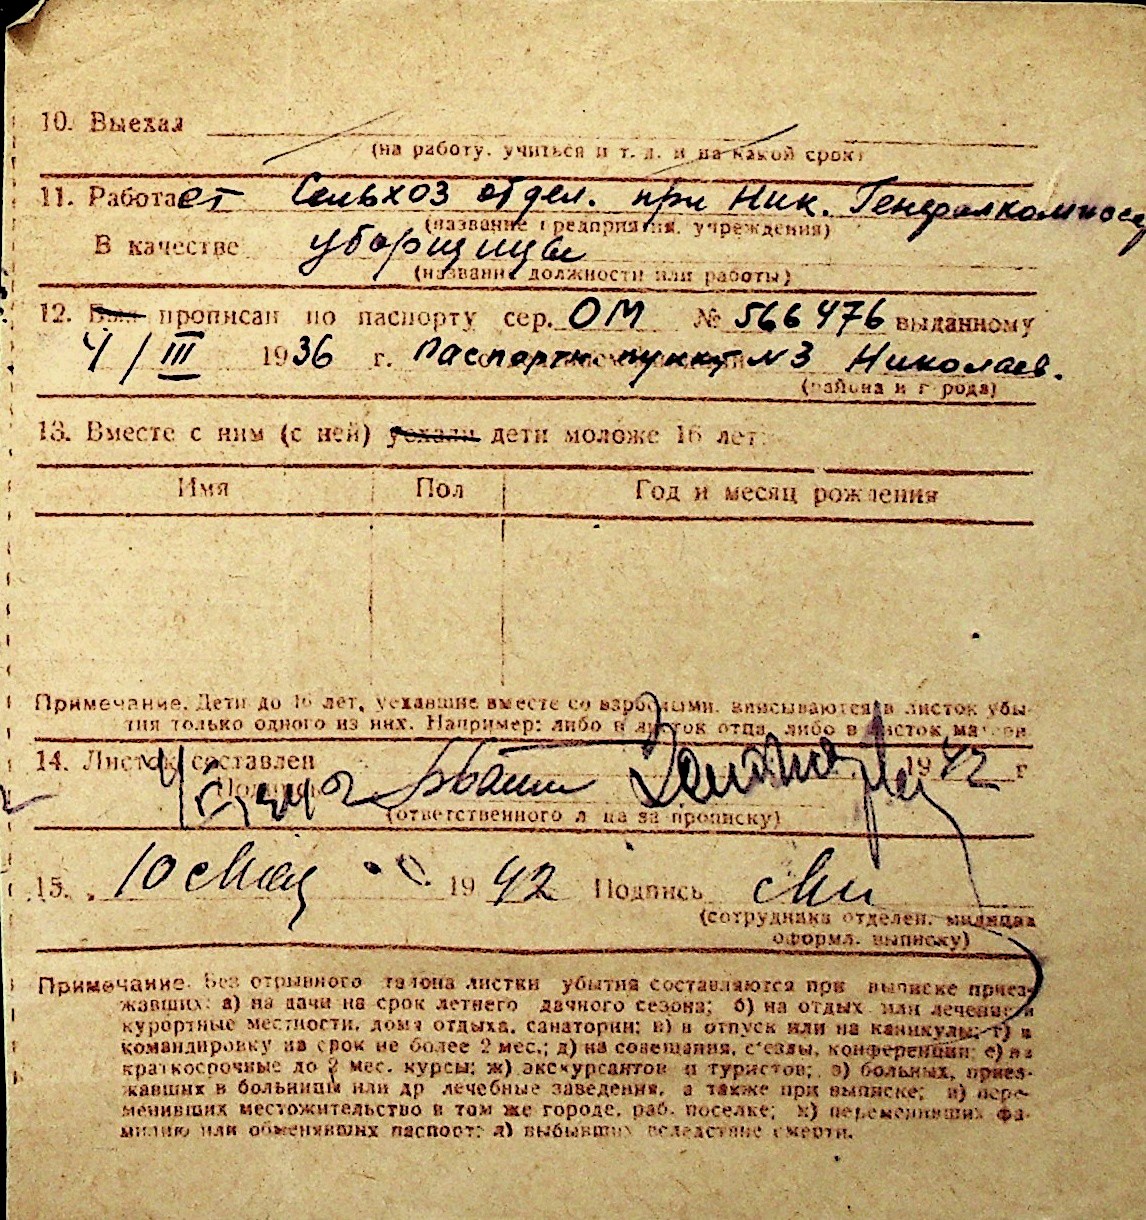 10. Выехал
(на работу, учиться и т. д. и на какой срок)
11. Работает Сельхоз отдел. при Ник. Генералкомиссар
(название предприятия, учреждения)
В качестве уборщицы
(название должности или работы)
12. Был прописан по паспорту сер. ОМ № 566476 выданному
4/III 1936 г. Паспортн пункт N3 Николаев.
(района и города)
13. Вместе с ним (с ней) уехали дети моложе 16 лет:
Имя Пол Год и месяц рождения
Примечание. Дети до 16 лет, уехавшие вместе со взрослыми, вписываются в листок убы-
тия только одного из них. Например: либо в листок отца, либо в листок матери
14. Листок составлен 1942 г
Подпись
(ответственного лица за прописку)
15. 10 мая 1942 Подпись
(сотрудника отделен. милиции
оформл. выписку)
Примечание. Без отрывного талона листки убытия составляются при выписке приез-
жавших: а) на дачи на срок летнего дачного сезона; б) на отдых или лечение в
курортные местности, дома отдыха, санатории; в) в отпуск или на каникулы; г) в
командировку на срок не более 2 мес.; д) на совещания, с'езды, конференции; е) на
краткосрочные до 2 мес. курсы; ж) экскурсантов и туристов; з) больных, приез-
жавших в больницы или др лечебные заведения, а также при выписке; и) пере-
менивших местожительство в том же городе, раб. поселке; к) переменивших фа-
милию или обменявших паспорт; л) выбывших вследствие смерти.